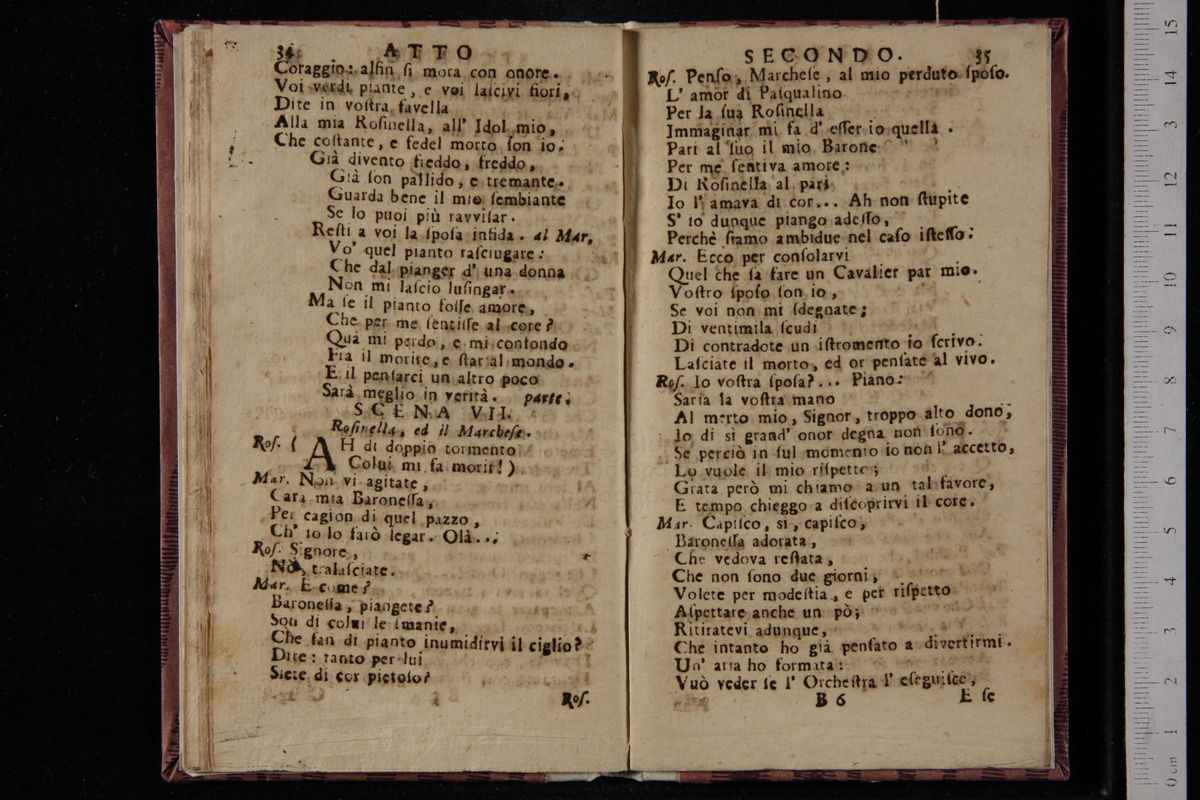 34 ATTO
Coraggio: alfin ſi mora con onore.
Voi verdi piante, e voi laſcivi fiori,
Dite in voſtra favella
Alla mia Roſinella, all' Idol mio,
Che coſtante, e fedel morto ſon io.
Già divento freddo, freddo,
Già ſon pallido, e tremante.
Guarda bene il mio ſembiante
Se lo puoi più ravviſar.
Reſti a voi la ſpoſa infida. al Mar.
Vo' quel pianto raſciugare:
Che dal pianger d' una donna
Non mi laſcio luſingar.
Ma ſe il pianto foſſe amore,
Che per me ſentiſſe al core?
Quà mi perdo, e mi confondo
Fra il morire, e ſtar al mondo.
E il penſarci un altro poco
Sarà meglio in verità. parte.
SCENA VII.
Roſinella, ed il Marcheſe.
Roſ. ( AH di doppio tormento
Colui mi fa morir! )
Mar. Non vi agitate,
Cara mia Baroneſſa,
Per cagion di quel pazzo,
Ch' io lo farò legar. Olà...
Roſ. Signore,
Nò, tralaſciate.
Mar. E come?
Baroneſſa, piangete?
Son di colui le ſmanie,
Che fan di pianto inumidirvi il ciglio?
Dite: tanto per lui
Siete di cor pietoſo?
Roſ.
SECONDO. 35
Roſ. Penſo, Marcheſe, al mio perduto ſpoſo.
L' amor di Paſqualino
Per la ſua Roſinella
Immaginar mi fa d' eſſer io quella.
Pari al ſuo il mio Barone
Per me ſentiva amore:
Di Roſinella al pari
Io l' amava di cor... Ah non ſtupite
S' io dunque piango adeſſo,
Perchè ſiamo ambidue nel caſo iſteſſo.
Mar. Ecco per conſolarvi
Quel che ſa fare un Cavalier par mio.
Voſtro ſpoſo ſon io,
Se voi non mi ſdegnate;
Di ventimila ſcudi
Di contradote un iſtromento io ſcrivo.
Laſciate il morto, ed or penſate al vivo.
Roſ. Io voſtra ſpoſa?... Piano:
Saria la voſtra mano
Al merto mio, Signor, troppo alto dono;
Io di sì grand' onor degna non ſono.
Se perciò in ſul momento io non l' accetto,
Lo vuole il mio riſpetto;
Grata però mi chiamo a un tal favore,
E tempo chieggo a diſcoprirvi il core.
Mar. Capiſco, sì, capiſco,
Baroneſſa adorata,
Che vedova reſtata,
Che non ſono due giorni,
Volete per modeſtia, e per riſpetto
Aſpettare anche un pò;
Ritiratevi adunque,
Che intanto ho già penſato a divertirmi.
Un' aria ho formata:
Vuò veder ſe l' Orcheſtra l' eſeguiſce,
B 6 E ſe